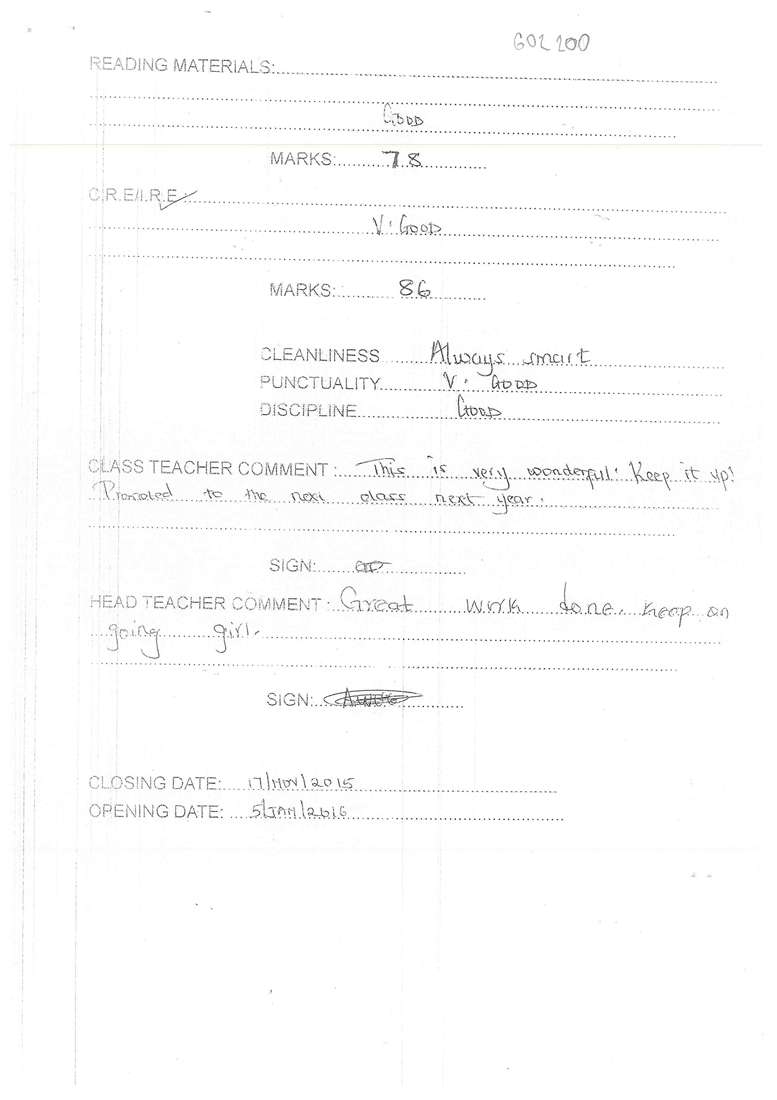 GOL 200
READING MATERIALS:
Good
MARKS: 78
C.R.E/I.R.E:
V. Good
MARKS: 86
CLEANLINESS Always smart
PUNCTUALITY V. Good
DISCIPLINE Good
CLASS TEACHER COMMENT: This is very wonderful! Keep it up!
Promoted to the next class next year.
SIGN:
HEAD TEACHER COMMENT: Great work done. Keep on
going girl.
SIGN:
CLOSING DATE: 17/NOV/2015
OPENING DATE: 5/JAN/2016